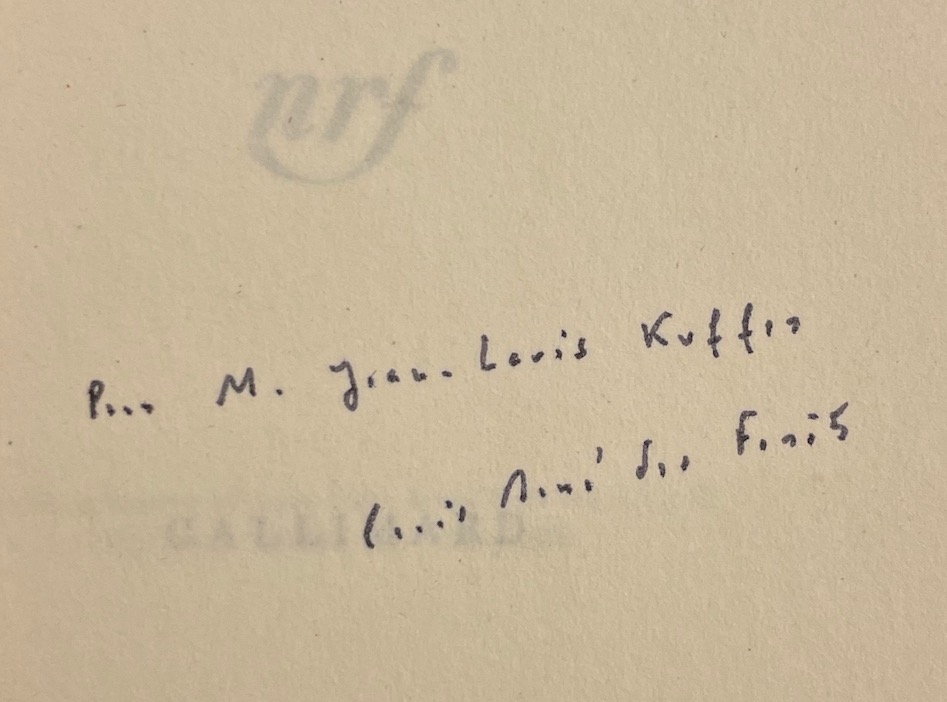 nrf
Pour M. Jean-Louis Kuffer
Louis René des Forêts
GALLIMARD